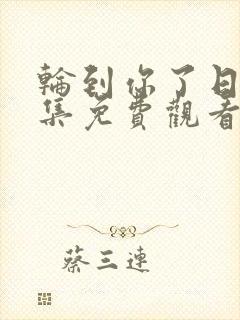 輪到你了日
集免費觀看
蔡三連